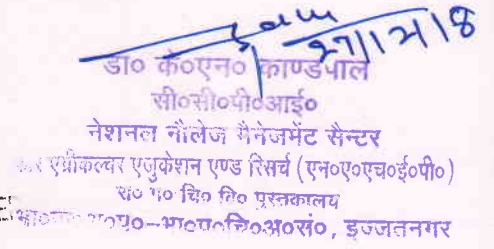 27/12/18
डा० के०एन० काण्डपाल
सी०सी०पी०आई०
नेशनल नौलेज मैनेजमेंट सैन्टर
एग्रीकल्चर एजुकेशन एण्ड रिसर्च (एन०ए०एच०ई०पी०)
रा० प० चि० वि० पुस्तकालय
इज्जतनगर